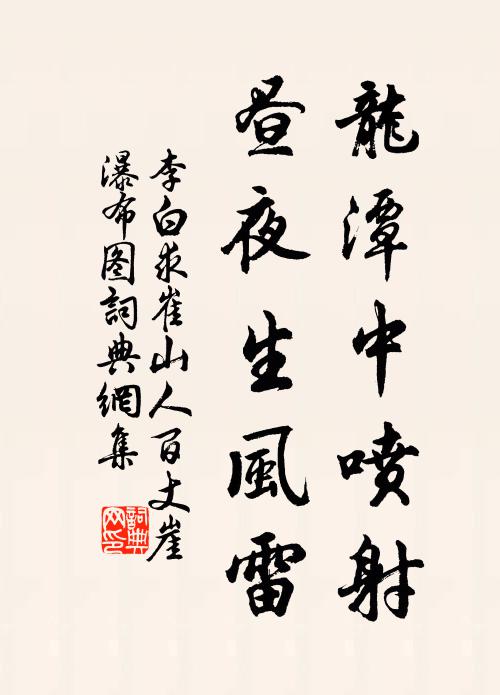 龍潭中噴射
昼夜生風雷
李白求崔山人百丈崖
瀑布图詞典網集
詞典
网印